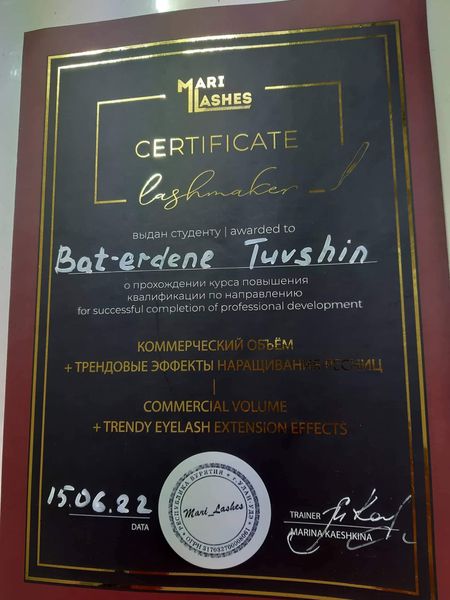 MARI
LASHES
CERTIFICATE
lashmaker
выдан студенту | awarded to
Bat-erdene Tuvshin
о прохождении курса повышения
квалификации по направлению
for successful completion of professional development
КОММЕРЧЕСКИЙ ОБЪЁМ
+ ТРЕНДОВЫЕ ЭФФЕКТЫ НАРАЩИВАНИЯ РЕСНИЦ
|
COMMERCIAL VOLUME
+ TRENDY EYELASH EXTENSION EFFECTS
15.06.22
DATA
РЕСПУБЛИКА БУРЯТИЯ * г. УЛАН-УДЭ
Mari_Lashes
TRAINER
MARINA KAESHKINA